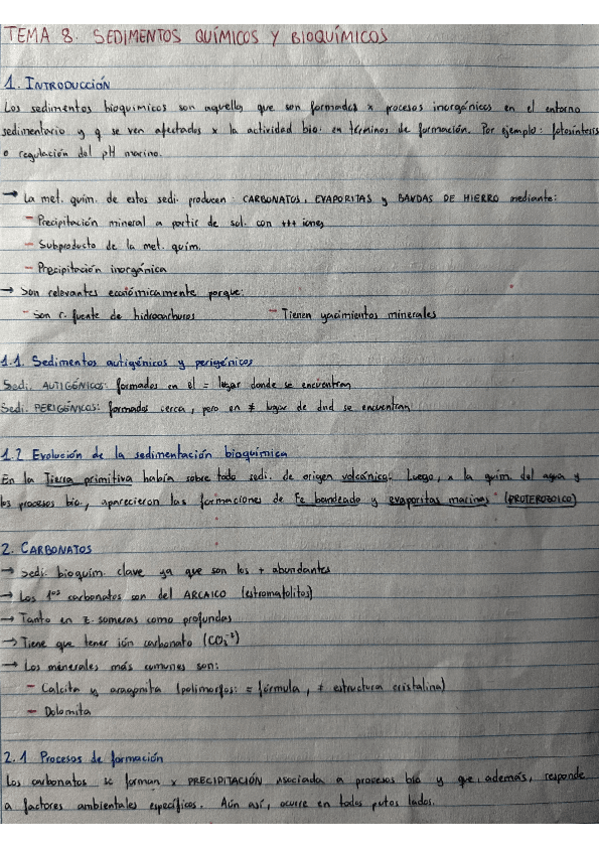 TEMA 8. SEDIMENTOS QUÍMICOS Y BIOQUÍMICOS
1. INTRODUCCIÓN
Los sedimentos bioquimicos son aquellos que son formados x procesos inorgánicos en el entorno
sedimentario y q se ven afectados x la actividad bio. en términos de formación. Por ejemplo: fotosíntesis
o regulación del pH marino.
→ La met. quim. de estos sedi. producen: CARBONATOS, EVAPORITAS y BANDAS DE HIERRO mediante:
- Precipitación mineral a partir de sol. con +++ iones
- Subproducto de la met. quím.
- Precipitación inorgánica
→ Son relevantes económicamente porque:
- Son r. fuente de hidrocarburos - Tienen yacimientos minerales
1.1. Sedimentos autigénicos y perigénicos
Sedi. AUTIGÉNICOS: formados en el = lugar donde se encuentran
Sedi. PERIGÉNICOS: formados cerca, pero en ≠ lugar de dnd se encuentran
1.2 Evolución de la sedimentación bioquímica
En la Tierra primitiva había sobre todo sedi. de origen volcánico. Luego, x la quím. del agua y
los procesos bio., aparecieron las formaciones de Fe bandeado y evaporitas marinas (PROTEROZOICO)
2. CARBONATOS
→ Sedi. bioquím. clave ya que son los + abundantes
→ Los 1os carbonatos son del ARCAICO (estromatolitos)
→ Tanto en z. someras como profundas
→ Tiene que tener ión carbonato (CO3-2)
→ Los minerales más comunes son:
- Calcita y aragonita (polimorfos: = fórmula, ≠ estructura cristalina)
- Dolomita
2.1 Procesos de formación
Los carbonatos se forman x PRECIPITACIÓN asociada a procesos bio y que, además, responde
a factores ambientales específicos. Aún así, ocurre en todos putos lados.